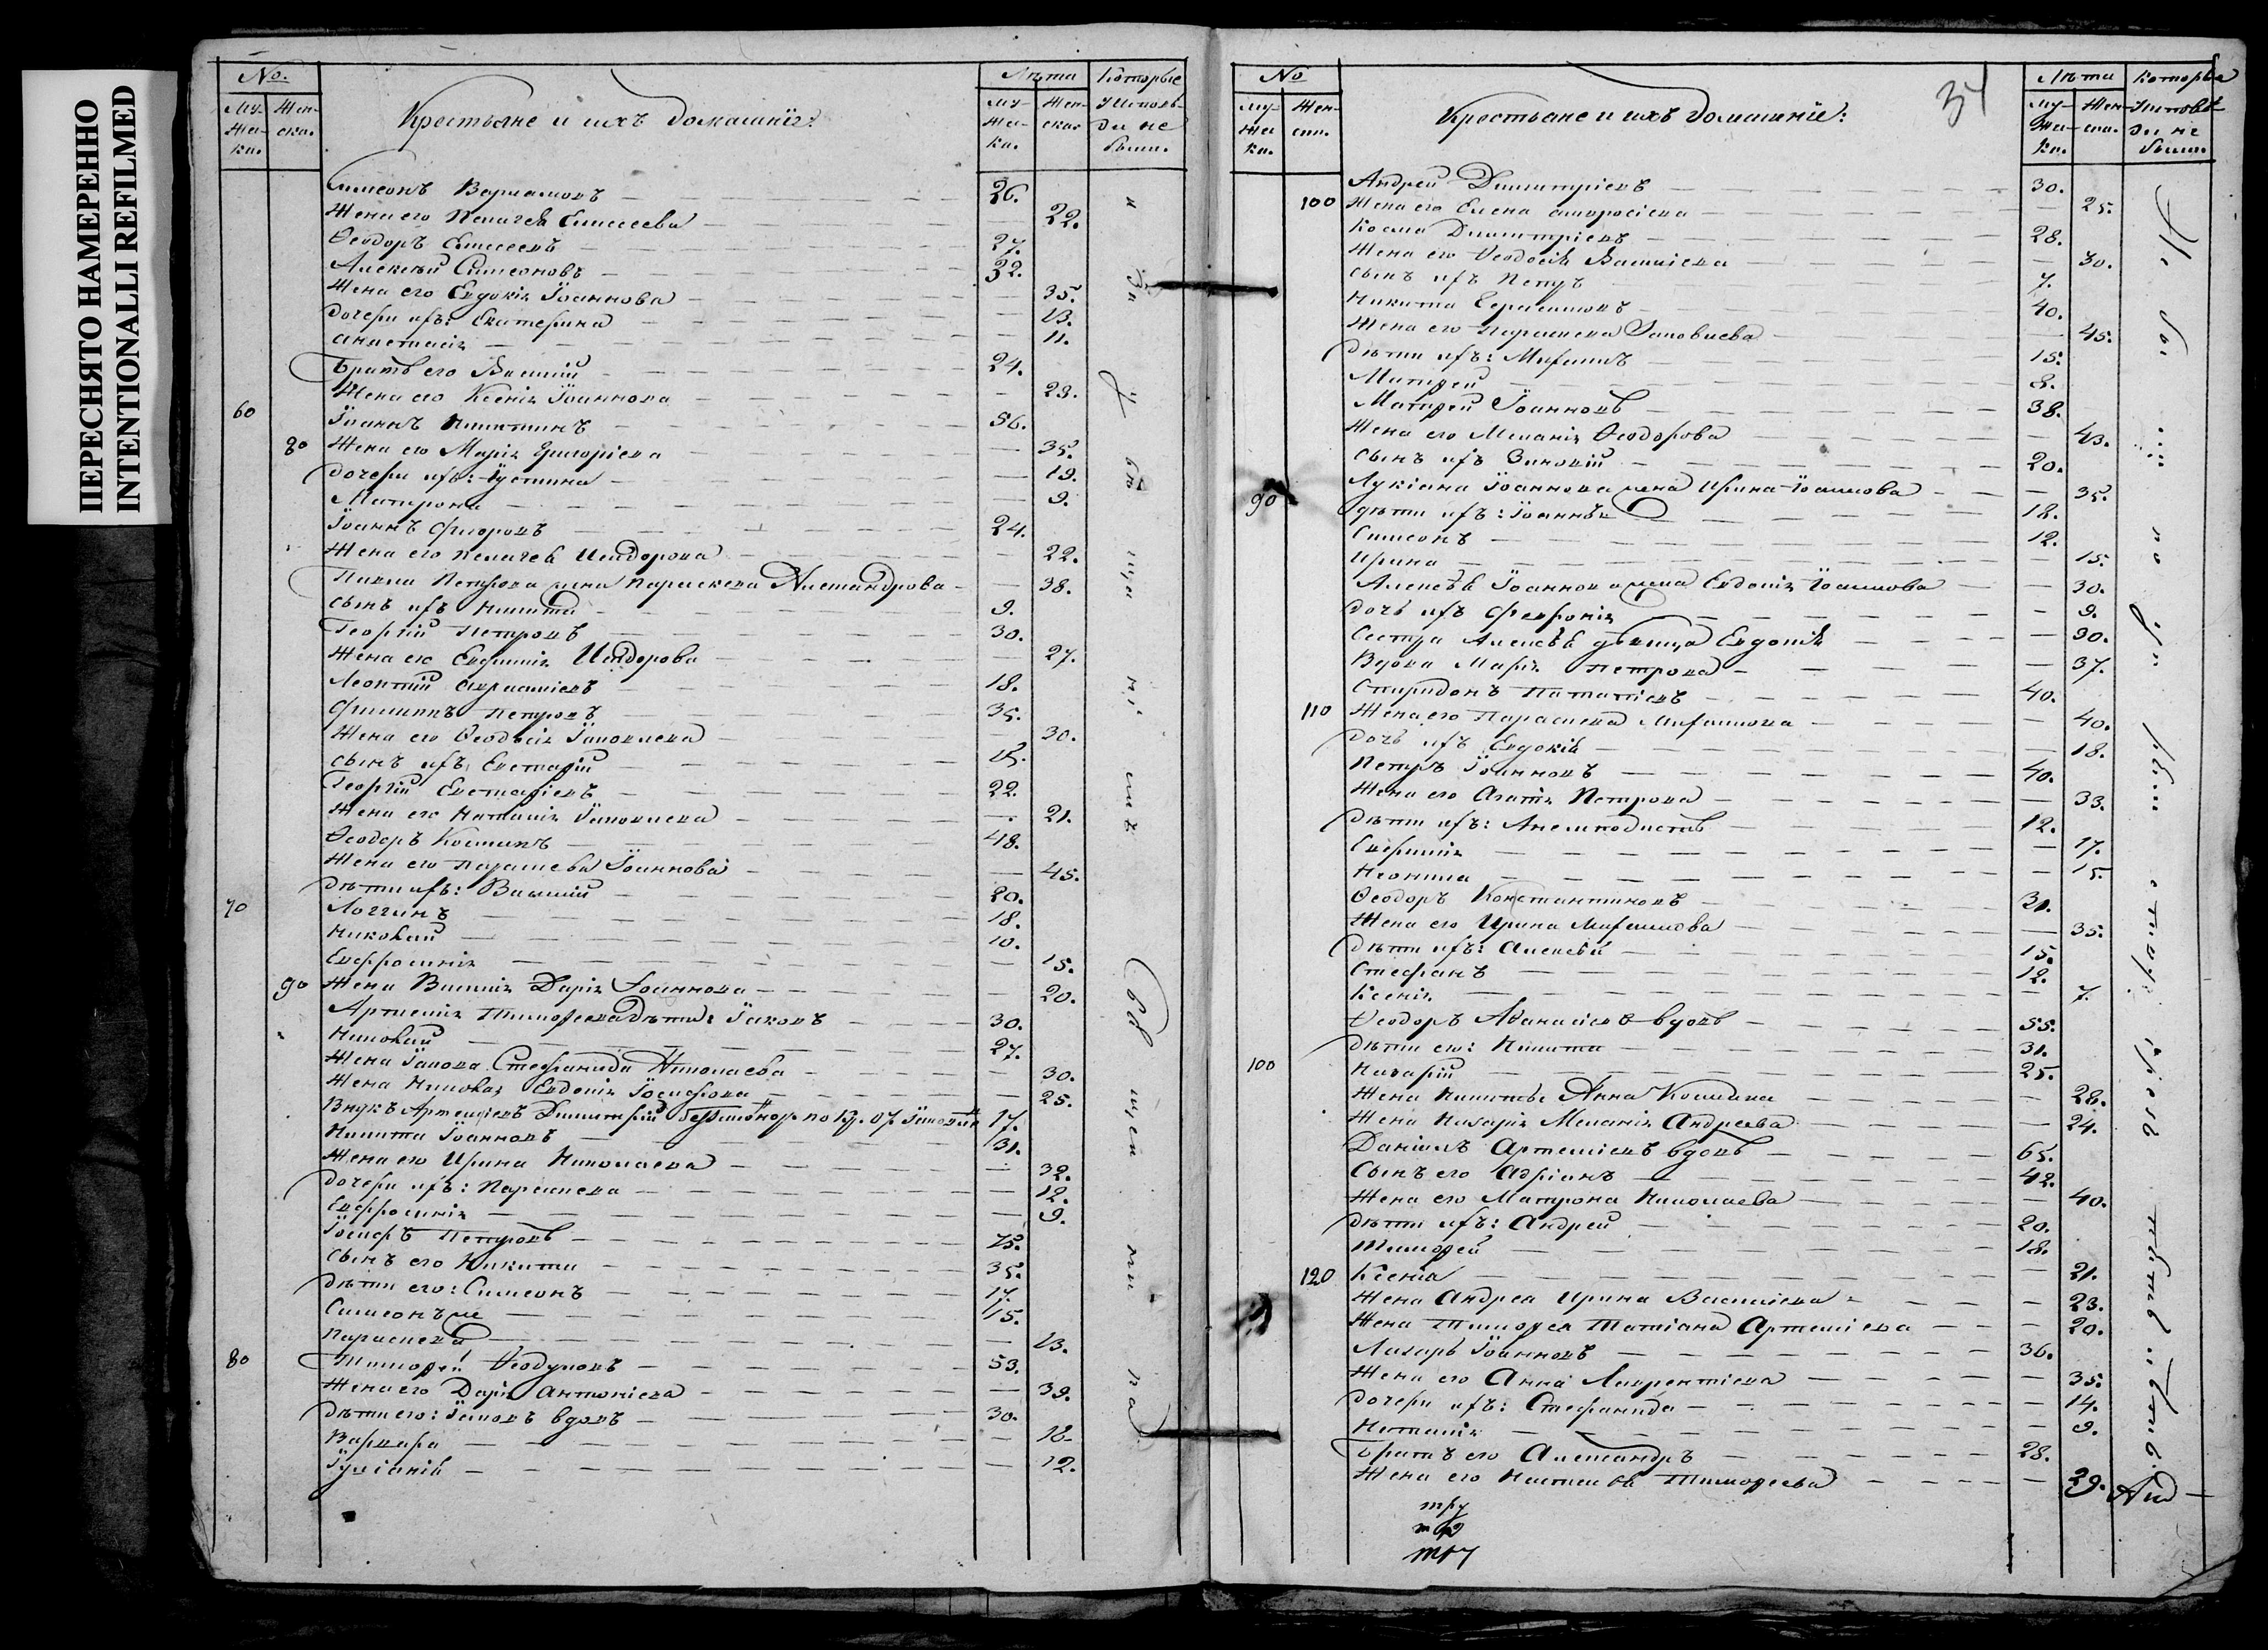 ПЕРЕСНЯТО НАМЕРЕННО
INTENTIONALLI REFILMED
No.
Му-
жес-
ка.
Жен-
ска.
Крестьяне и ихъ домашніе:
Лѣта
Му-
жес-
ка.
Жен-
ска
Которые
у исповѣ-
ди не
были.
Симеонъ 26.
Жена его Пелагеѣ Елисеева 22.
Ѳеодоръ Елисеевъ 27.
Алексѣй Симеоновъ 32.
Жена его Евдокія Іоаннова 35.
дочери ихъ: Екатерина 13.
Анастасія 11.
Братъ его Василій 24.
Жена его Ксенія Іоаннова 23.
60 Іоаннъ Никитинъ 56.
80 Жена его Марія Григоріева 35.
дочери ихъ: Іустина 19.
Матрона 9.
Іоаннъ 24.
Жена его Пелагеѣ Исидорова 22.
Петрова жена Параскева Александрова 38.
сынъ ихъ Никита 9.
Георгій Петровъ 30.
Жена его Евфимія Исидорова 27.
Леонтій 18.
Филиппъ Петровъ 35.
Жена его Ѳеодосія Іаковлева 30.
сынъ ихъ Евстафій 15.
Георгій Евстафіевъ 22.
Жена его Наталія Іаковлева 21.
Ѳеодоръ Косминъ 48.
Жена его Параскева Іоаннова 45.
дѣти ихъ: Василій 20.
70 Логгинъ 18.
Николай 10.
Евфросинія 15.
90 Жена Василія Дарія Іоаннова 20.
Артемія Тимофеева дѣти: Іаковъ 30.
Николай 27.
Жена Іакова Стефанида Николаева 30.
Жена Николая Евдокія Іосифова 25.
Внукъ Артеміевъ Димитрій 17.
Никита Іоанновъ 31.
Жена его Ирина Николаева 32.
дочери ихъ: Параскева 12.
Евфросинія 9.
Іосифъ Петровъ 75.
сынъ его Никита 35.
дѣти его: Симеонъ 17.
Симеонъ же 15.
Параскева 13.
80 Тимофей Ѳеодуловъ 53.
Жена его Дарія Антоніева 39.
дѣти его: Іаковъ вдовъ 30.
Варвара 18.
Іуліанія 12.
No
Му-
жес
ка.
Жен-
ска.
Крестьяне и ихъ домашніе:
34
Лѣта
Му-
жес-
ка.
Жен-
ска.
Которые
у исповѣ-
ди не
были.
Андрей Димитріевъ 30.
100 Жена его Елена Амвросіева 25.
Косма Димитріевъ 28.
Жена его Ѳеодосія Василіева 30.
сынъ ихъ Петръ 7.
Никита Герасимовъ 40.
Жена его Параскева Іаковлева 45.
дѣти ихъ: Михаилъ 15.
Матфей 8.
Матфей Іоанновъ 38.
Жена его Меланія Ѳеодорова 43.
сынъ ихъ Зиновій 20.
Лукіана Іоаннова жена Ирина Іоаннова 35.
90 дѣти ихъ: Іоаннъ 18.
Симеонъ 12.
Ирина 15.
Алексѣя Іоаннова жена Евдокія Іоаннова 30.
дочь ихъ Февронія 9.
Сестра Алексѣя дѣвица Евдокія 30.
Вдова Марія Петрова 37.
Спиридонъ 40.
110 Жена его Параскева Михаилова 40.
дочь ихъ Евдокія 18.
Петръ Іоанновъ 40.
Жена его Агапія Петрова 33.
дѣти ихъ: Анемподистъ 12.
Евфимія 17.
Неонила 15.
Ѳеодоръ Константиновъ 31.
Жена его Ирина Михаилова 35.
дѣти ихъ: Алексѣй 15.
Стефанъ 12.
Ксенія 7.
Ѳеодоръ Аѳанасіевъ вдовъ 55.
дѣти его: Никита 31.
100 Назарій 25.
Жена Никиты Анна Космина 28.
Жена Назарія Меланія Андреева 24.
Даніилъ Артеміевъ вдовъ 65.
Сынъ его Адріанъ 42.
Жена его Матрона Николаева 40.
дѣти ихъ: Андрей 20.
Тимофей 18.
120 Ксенія 21.
Жена Андрея Ирина Василіева 23.
Жена Тимофея Татіана Артеміева 20.
Лазарь Іоанновъ 36.
Жена его Анна Лаврентіева 35.
дочери ихъ: Стефанида 14.
Наталія 9.
Братъ его Александръ 28.
Жена его Тимофеева 29.